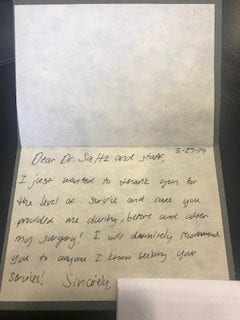 3-27-19
Dear Dr. Saltz and staff,
I just wanted to thank you for
the level of service and care you
provided me during, before and after
my surgery! I will definitely recommend
you to anyone I know seeking your
services! Sincerely,